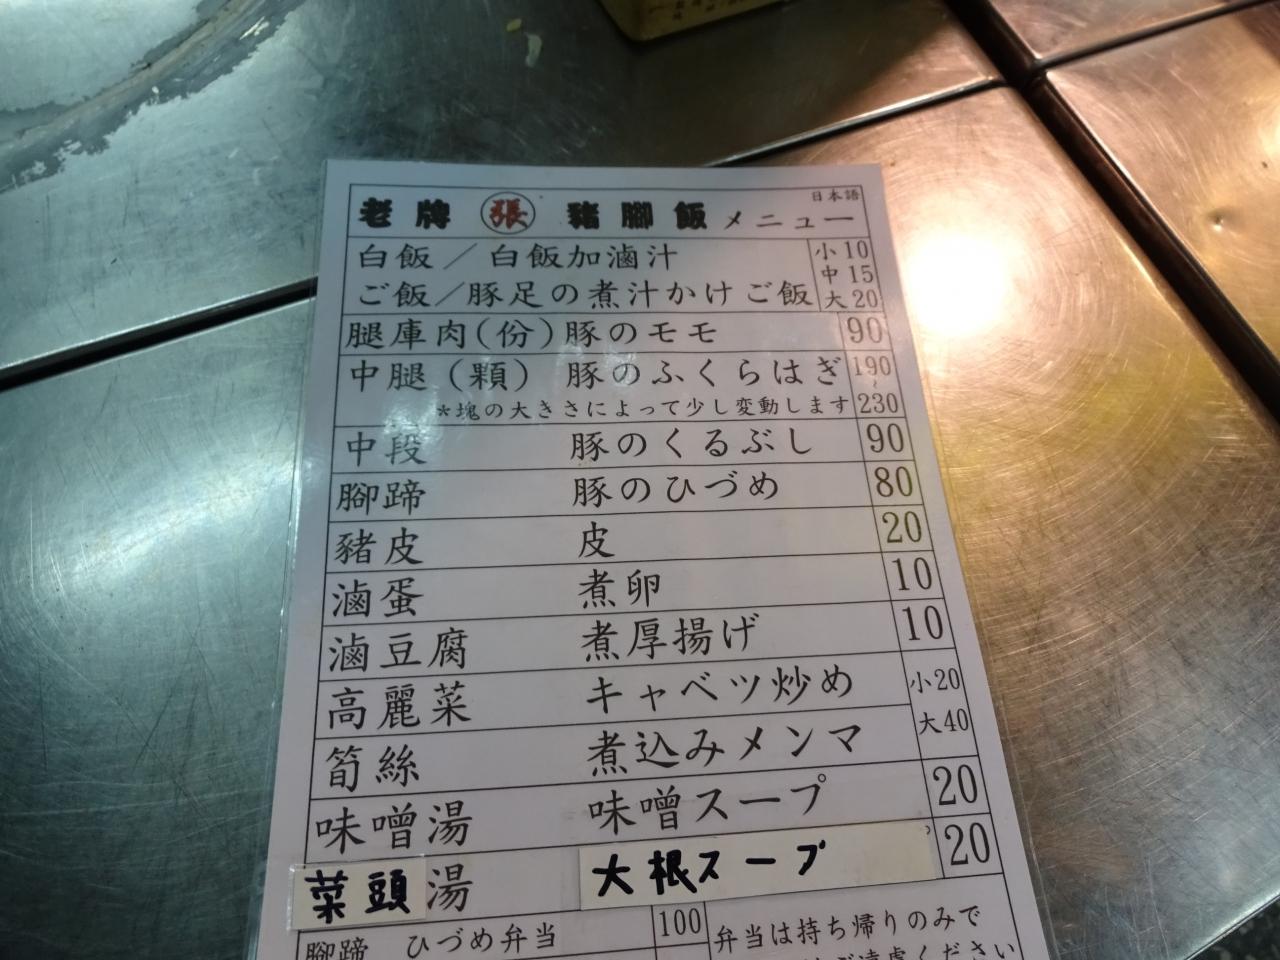 日本語
老牌 張 豬腳飯 メニュー
白飯／白飯加滷汁 小10
中15
ご飯/豚足の煮汁かけご飯 大20
腿庫肉(份)豚のモモ 90
中腿（顆） 豚のふくらはぎ 190
～
*塊の大きさによって少し変動します 230
中段 豚のくるぶし 90
腳蹄 豚のひづめ 80
豬皮 皮 20
滷蛋 煮卵 10
滷豆腐 煮厚揚げ 10
高麗菜 キャベツ炒め 小20
筍絲 煮込みメンマ 大40
味噌湯 味噌スープ 20
菜頭湯 大根スープ 20
腳蹄 ひづめ弁当 100 弁当は持ち帰りのみで
ご遠慮ください